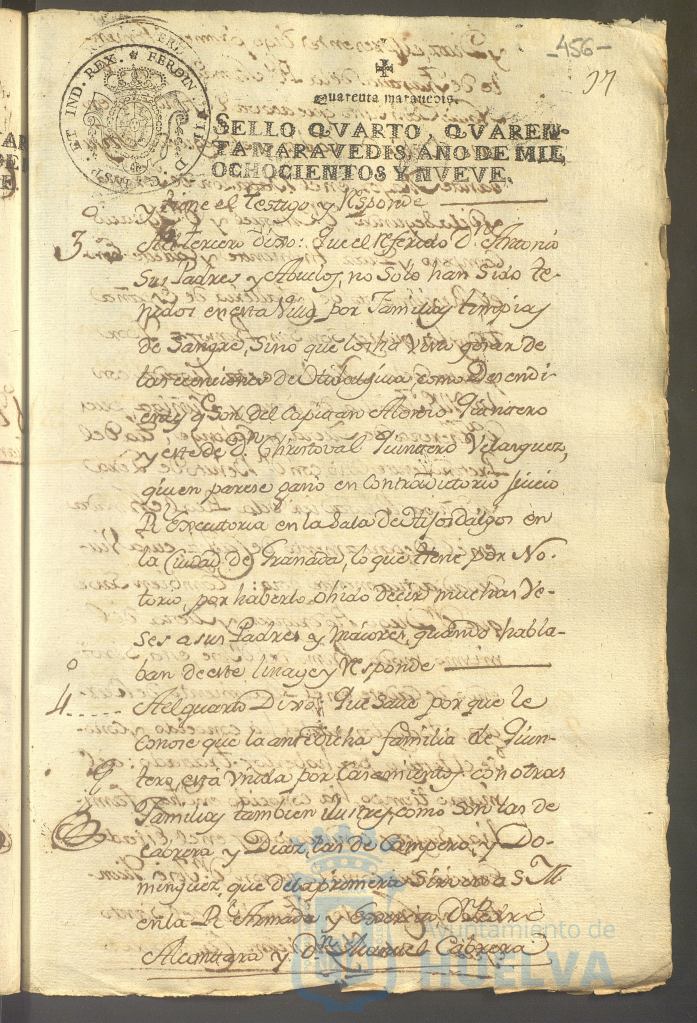 -456-
97
FERDIN. VII. D. G. HISP. ET IND. REX.
Quarenta maravedis.
SELLO QVARTO, QVAREN-
TA MARAVEDIS, AÑO DE MIL
OCHOCIENTOS Y NVEVE.
y tiene el Testigo y Responde
3 Al tercero dixo: Que el referido Dn. Antonio
Sus Padres y Abuelos, no Solo han Sido te-
nidos en esta Villa por Familias limpias
de Sangre, Sino que los ha Visto gosar de
las ecenciones de Hidalguia como Desendi-
entes qe. Son del Capitan Alonso Quintero
y este de Dn. Christoval Quintero Velasquez,
quien parese ganó en Contradictorio Juicio
Rl. Executoria en la Sala de Hijosdalgos en
la Ciudad de Granada, lo que tiene por No-
torio, por haberlo ohido decir muchas Ve-
ses a sus Padres y maiores, quando habla-
ban de este linage y Responde
4 Al quarto Dixo: Que Save por que le
Conose que la antedicha familia de Quin-
tero, esta Vnida por Casamientos con otras
Familias tambien ilustres, como Son las de
Cabrera y Diaz, las de Campero, y Do-
minguez, que de la primera Sirven a S. M.
en la Rl. Armada y Exercito Dn. Pedro
Alcantara y Dn. Manuel Cabrera
Ayuntamiento de
HUELVA